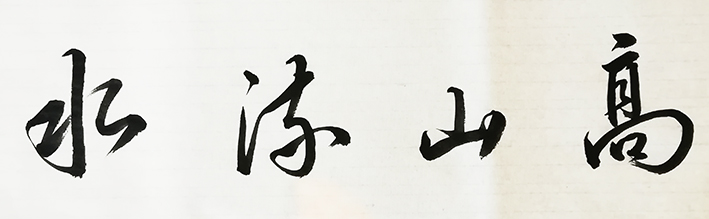 高山流水